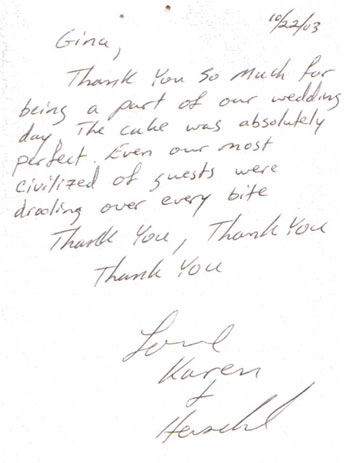 10/22/03
Gina,
Thank You So Much for
being a part of our wedding
day. The cake was absolutely
perfect. Even our most
civilized of guests were
drooling over every bite
Thank You, Thank You
Thank You
Love
Karen
+
Herschl